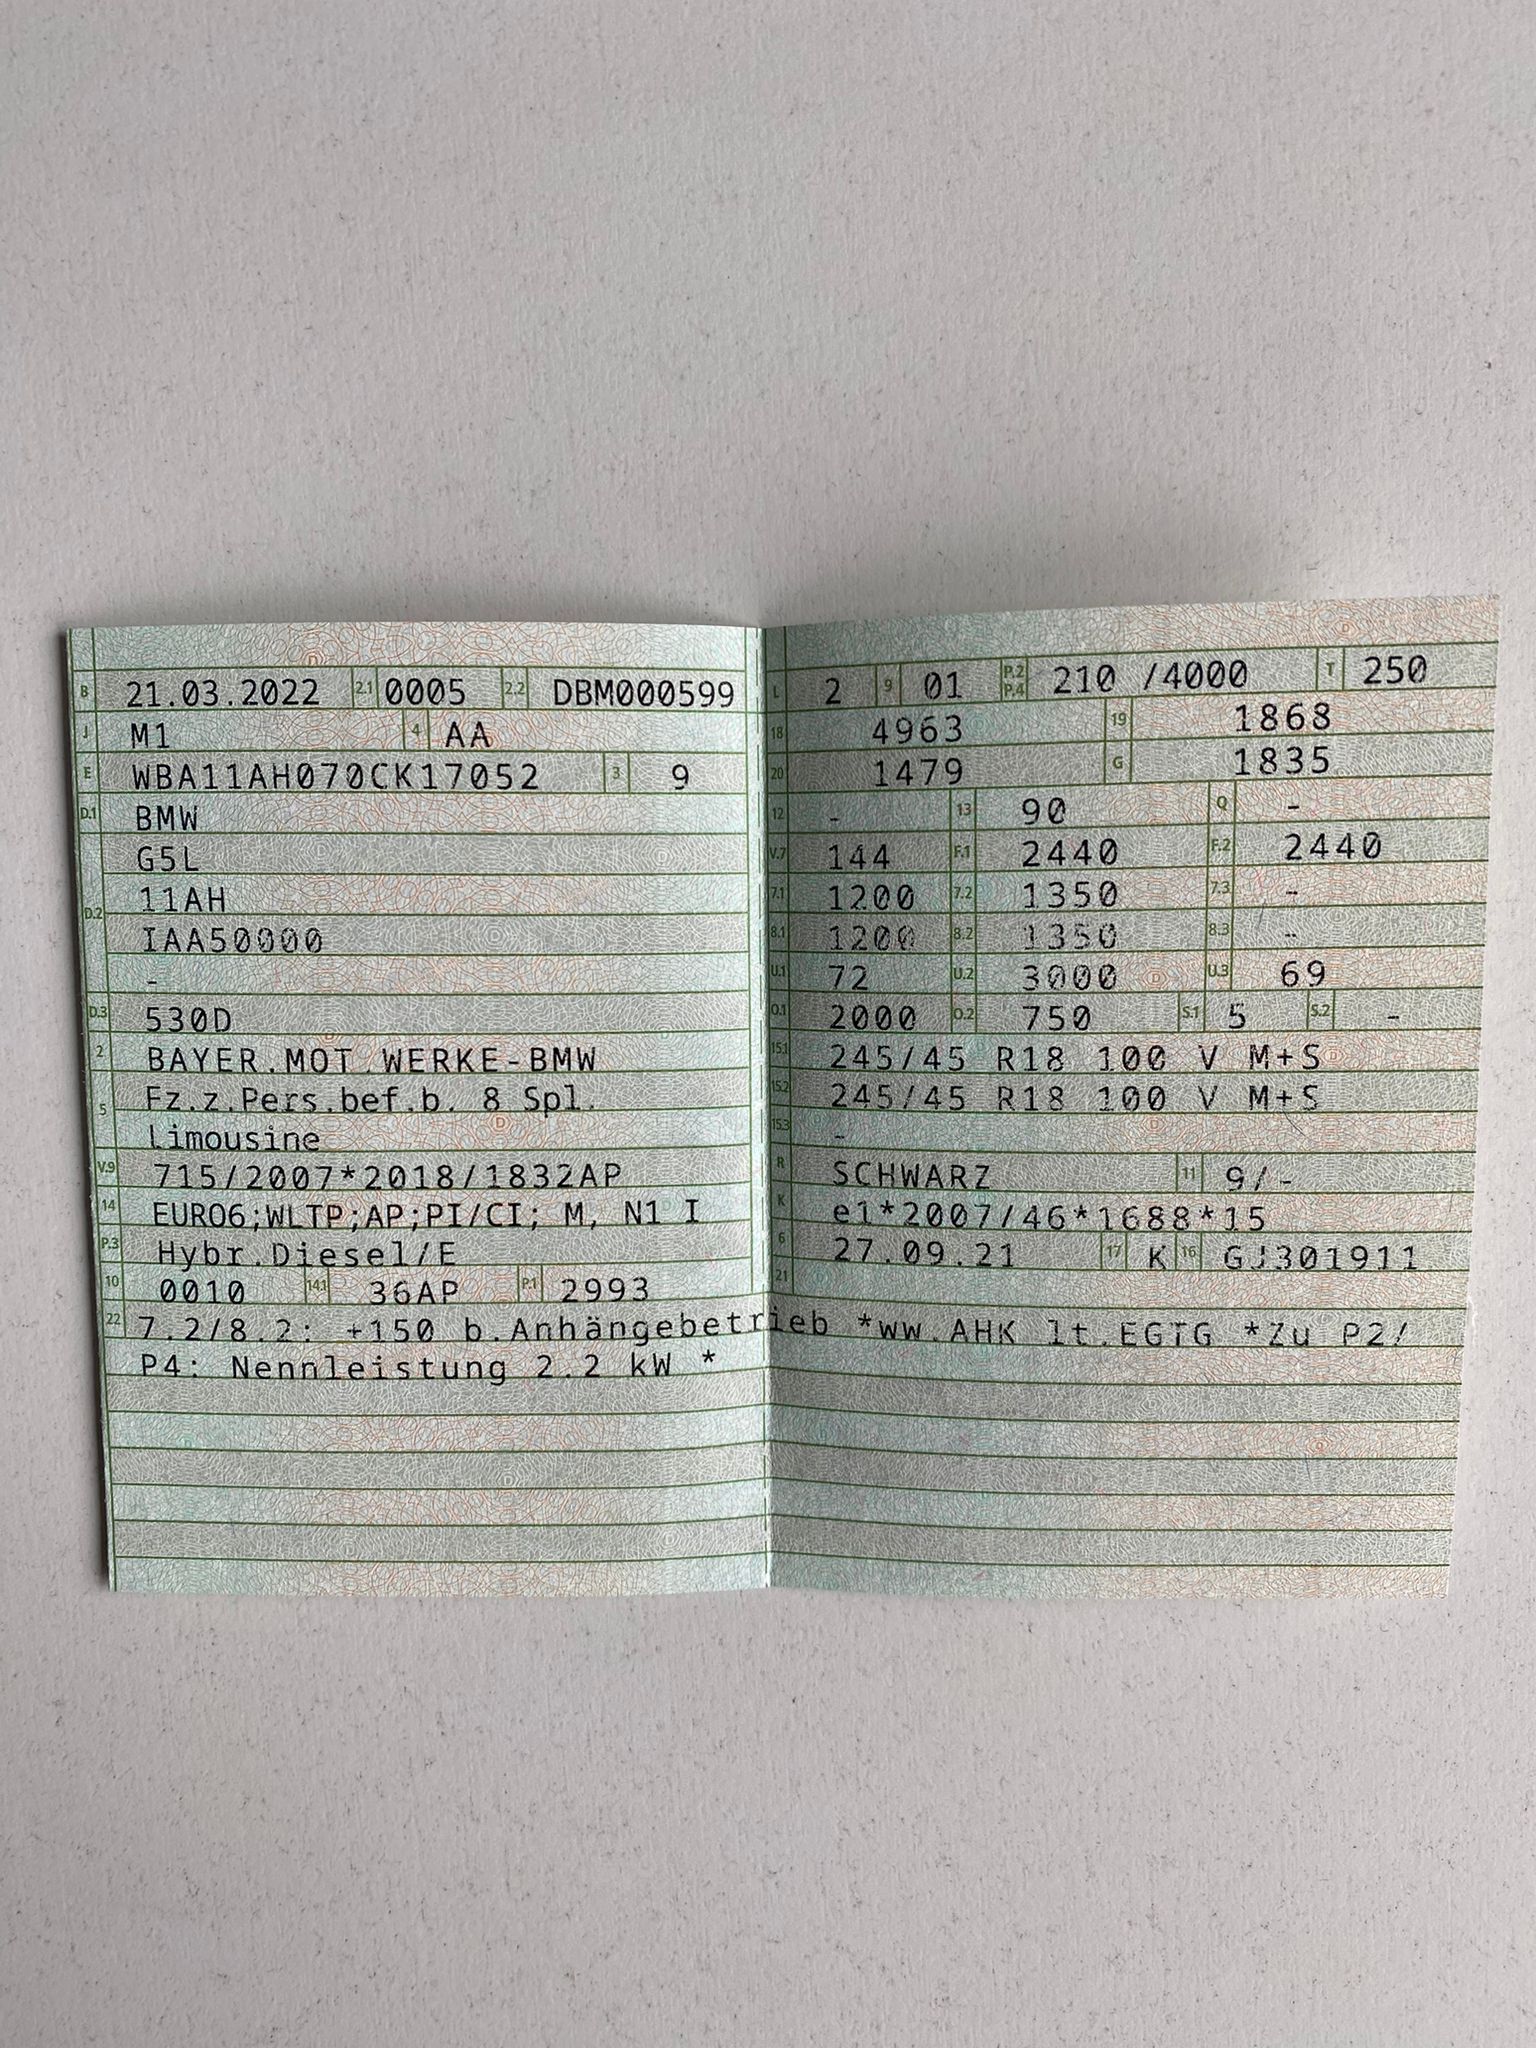 B 21.03.2022 2.1 0005 2.2 DBM000599
J M1 4 AA
E WBA11AH070CK17052 3 9
D.1 BMW
D.2 G5L
11AH
IAA50000
-
D.3 530D
2 BAYER.MOT.WERKE-BMW
5 Fz.z.Pers.bef.b. 8 Spl.
Limousine
V.9 715/2007*2018/1832AP
14 EURO6;WLTP;AP;PI/CI; M, N1 I
P.3 Hybr.Diesel/E
10 0010 14.1 36AP P.1 2993
L 2 9 01 P.2 P.4 210 /4000 T 250
18 4963 19 1868
20 1479 G 1835
12 - 13 90 Q -
V.7 144 F.1 2440 F.2 2440
7.1 1200 7.2 1350 7.3 -
8.1 1200 8.2 1350 8.3 -
U.1 72 U.2 3000 U.3 69
O.1 2000 O.2 750 S.1 5 S.2 -
15.1 245/45 R18 100 V M+S
15.2 245/45 R18 100 V M+S
15.3 -
R SCHWARZ 11 9/-
K e1*2007/46*1688*15
6 27.09.21 17 K 16 GJ301911
21
22 7.2/8.2: +150 b.Anhängebetrieb *ww.AHK lt.EGTG *Zu P2/
P4: Nennleistung 2.2 kW *